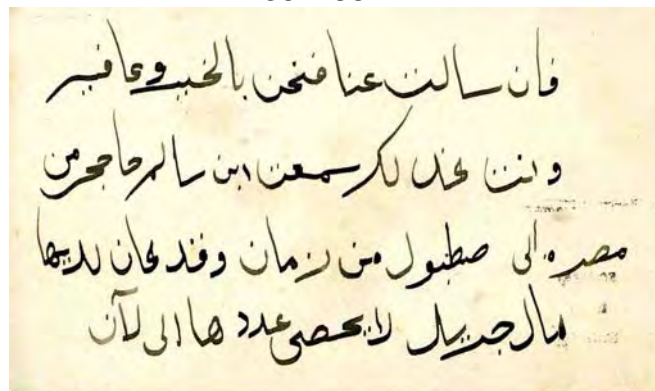 فان سالت عنا فنحن بالخير وعافيه
وانت تخدلك سمعت ابن سالم هاجر من
مصره الى صطنبول من زمان وقد كان لديها
مال جزيل لا يحصى عددها الى لآن